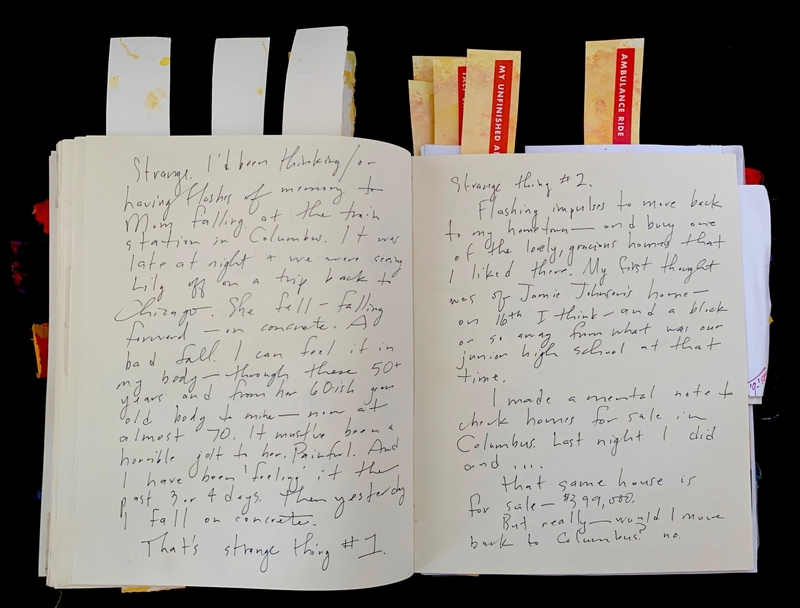 MY UNFINISHED
AMBULANCE RIDE
Strange. I'd been thinking/or
having flashes of memory to
Mom falling at the train
station in Columbus. It was
late at night + we were seeing
Lily off on a trip back to
Chicago. She fell - falling
forward - on concrete. A
bad fall. I can feel it in
my body - through these 50+
years and from her 60-ish year
old body to mine - now at
almost 70. It must've been a
horrible jolt to her. Painful. And
I have been 'feeling' it the
past 3 or 4 days. Then yesterday
I fall on concrete.
That's strange thing #1.
Strange thing #2.
Flashing impulses to move back
to my hometown - and buy one
of the lovely, gracious homes that
I liked there. My first thought
was of Jamie Johnson's home -
on 16th I think - and a block
or so away from what was our
junior high school at that
time.
I made a mental note to
check homes for sale in
Columbus. Last night I did
and ....
that same house is
for sale - $399,000.
But really - would I move
back to Columbus? no.